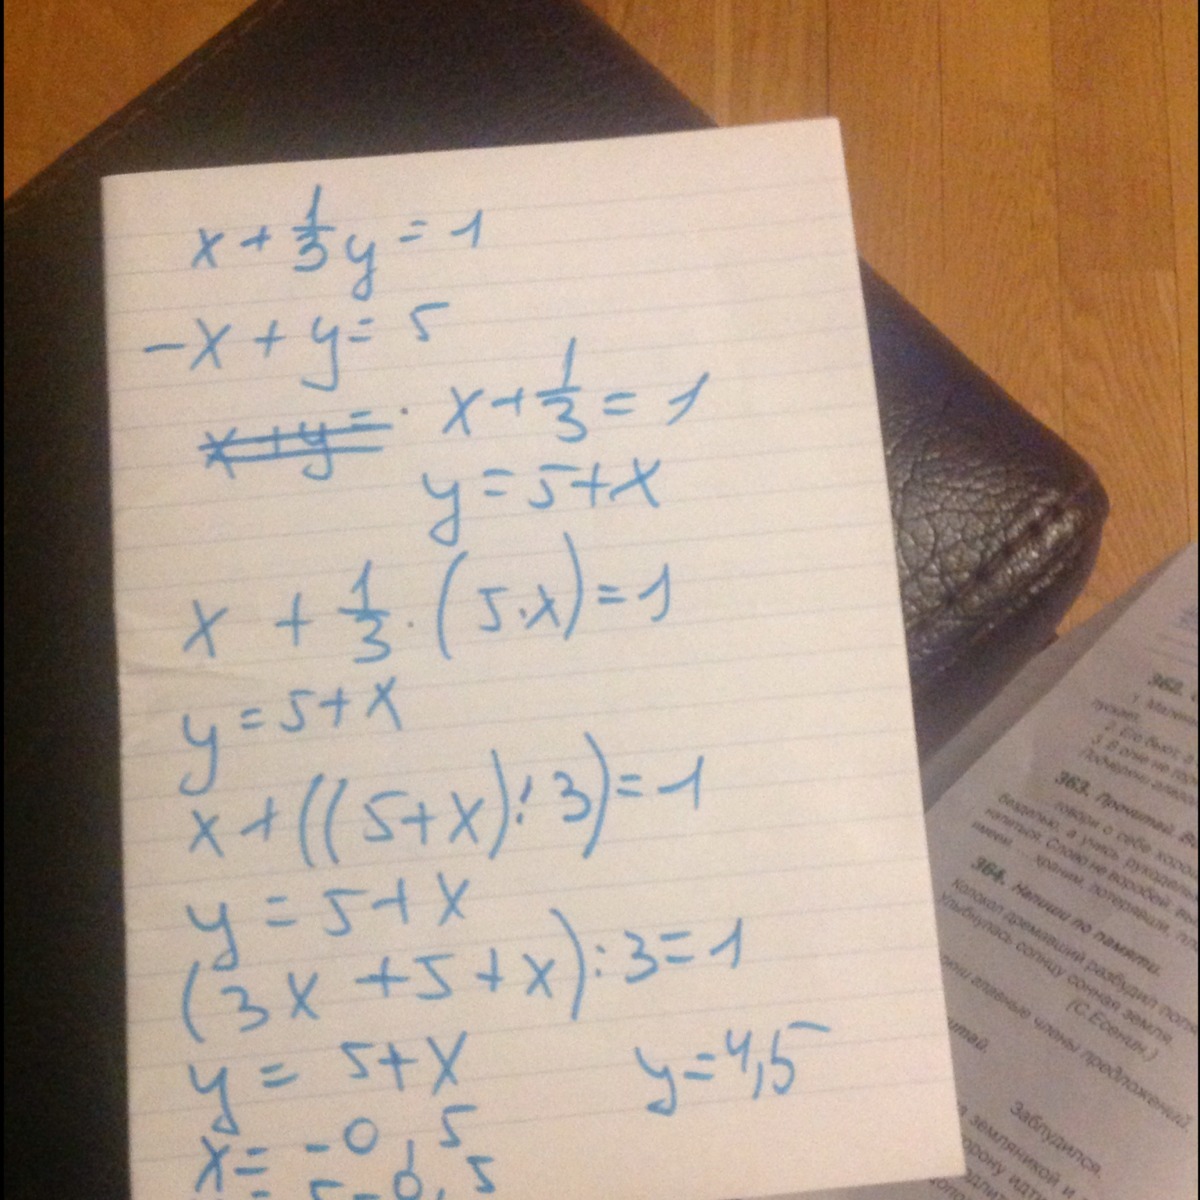 x + 1/3 y = 1
-x + y = 5
x + y =
x + 1/3 = 1
y = 5 + x
x + 1/3 · (5·x) = 1
y = 5 + x
x + ((5 + x) : 3) = 1
y = 5 + x
(3x + 5 + x) : 3 = 1
y = 5 + x
y = 4,5
x = -0,5
5 - 0,5
362.
1. Малин
пускает.
363. Прочитай.
говори с себе
безделью, а учись
напиться. Слово не воробей
имеем храним, потерявши,
364. Напиши по памяти.
Колокол дремавший разбудил
улыбнулась солнцу сонная земля.
(С.Есенин.)
главные члены предложений.
Заблудился.
земляникой и